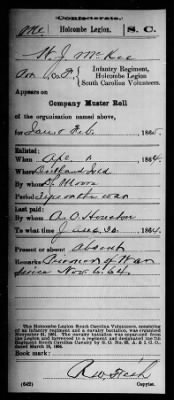 Confederate.
Holcombe Legion. S. C.
W. J. McKee
Infantry Regiment,
Holcombe Legion
South Carolina Volunteers.
Appears on
Company Muster Roll
of the organization named above,
for Jan & Feb, 1865.
Enlisted:
When Apl, 1864.
Where
By Moore
Period
Last paid:
By A. D. Houston
To what time June 30, 1864.
Present or absent Absent
Remarks: Prisoner of War
since Nov. 6. 64.
The Holcombe Legion South Carolina Volunteers, consisting
of an infantry regiment and a cavalry battalion, was organized
November 21, 1861. The cavalry battalion was separated from
the Legion and increased to a regiment and designated the 7th
Regiment South Carolina Cavalry by S. O. No. 65, A. & I. G. O.,
dated March 18, 1864.
Book mark:
(642) Copyist.